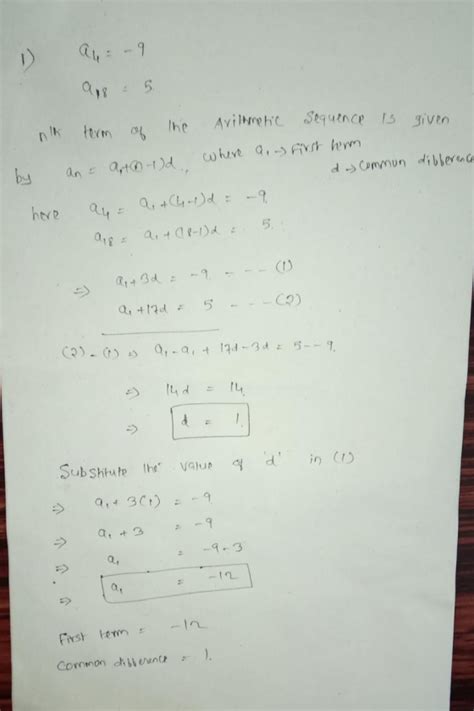 1) a₄ = -9
a₁₈ = 5
nᵗʰ term of the Arithmetic Sequence is given
by aₙ = a₁+(n-1)d., where a₁ → First term
d → Common difference
here a₄ = a₁+(4-1)d = -9
a₁₈ = a₁+(18-1)d = 5.
⇒ a₁+3d = -9 - - - (1)
a₁+17d = 5 - - - (2)
(2)-(1) ⇒ a₁-a₁+17d-3d = 5--9.
⇒ 14d = 14.
⇒ d = 1.
Substitute the value of 'd' in (1)
⇒ a₁+3(1) = -9
⇒ a₁+3 = -9
⇒ a₁ = -9-3
⇒ a₁ = -12
First term = -12
Common difference = 1.